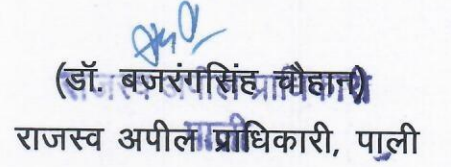 (डॉ. बजरंगसिंह चौहान)
राजस्व अपील प्राधिकारी, पाली